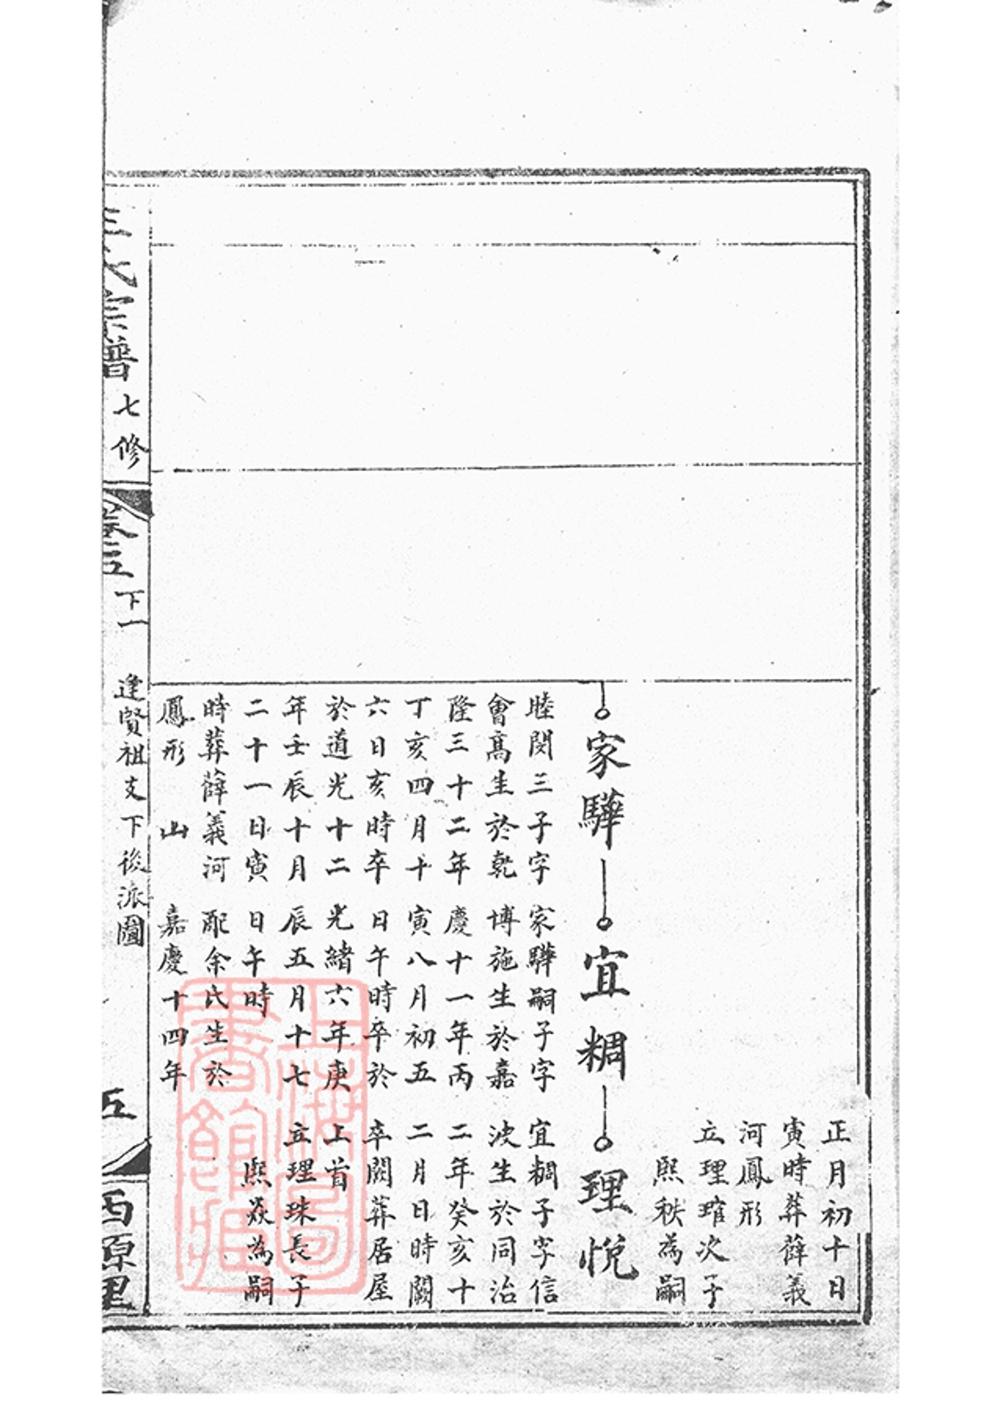 正月初十日
寅時葬薛義
河鳳形
立理琯次子
熙秩為嗣
家驊
宜稠
理悅
睦閔三子字
會高生於乾
隆三十二年
丁亥四月十
六日亥時卒
於道光十二
年壬辰十月
二十一日寅
時葬薛義河
鳳形 山
家驊嗣子字
博施生於嘉
慶十一年丙
寅八月初五
日午時卒於
光緒六年庚
辰五月十七
日午時
配余氏生於
嘉慶十四年
宜稠子字信
波生於同治
二年癸亥十
二月日時闕
卒闕葬居屋
上首
立理珠長子
熙焱為嗣
王氏宗譜 七修
卷五 下一
逢賢祖支下後派圖
五
西原里
上海圖
書館藏